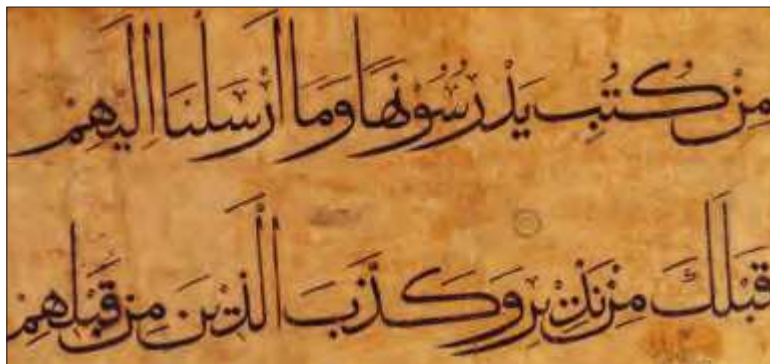 مِنْ كُتُبٍ يَدْرُسُونَهَا وَمَا أَرْسَلْنَا إِلَيْهِمْ
قَبْلَكَ مِنْ نَذِيرٍ وَكَذَّبَ الَّذِينَ مِنْ قَبْلِهِمْ